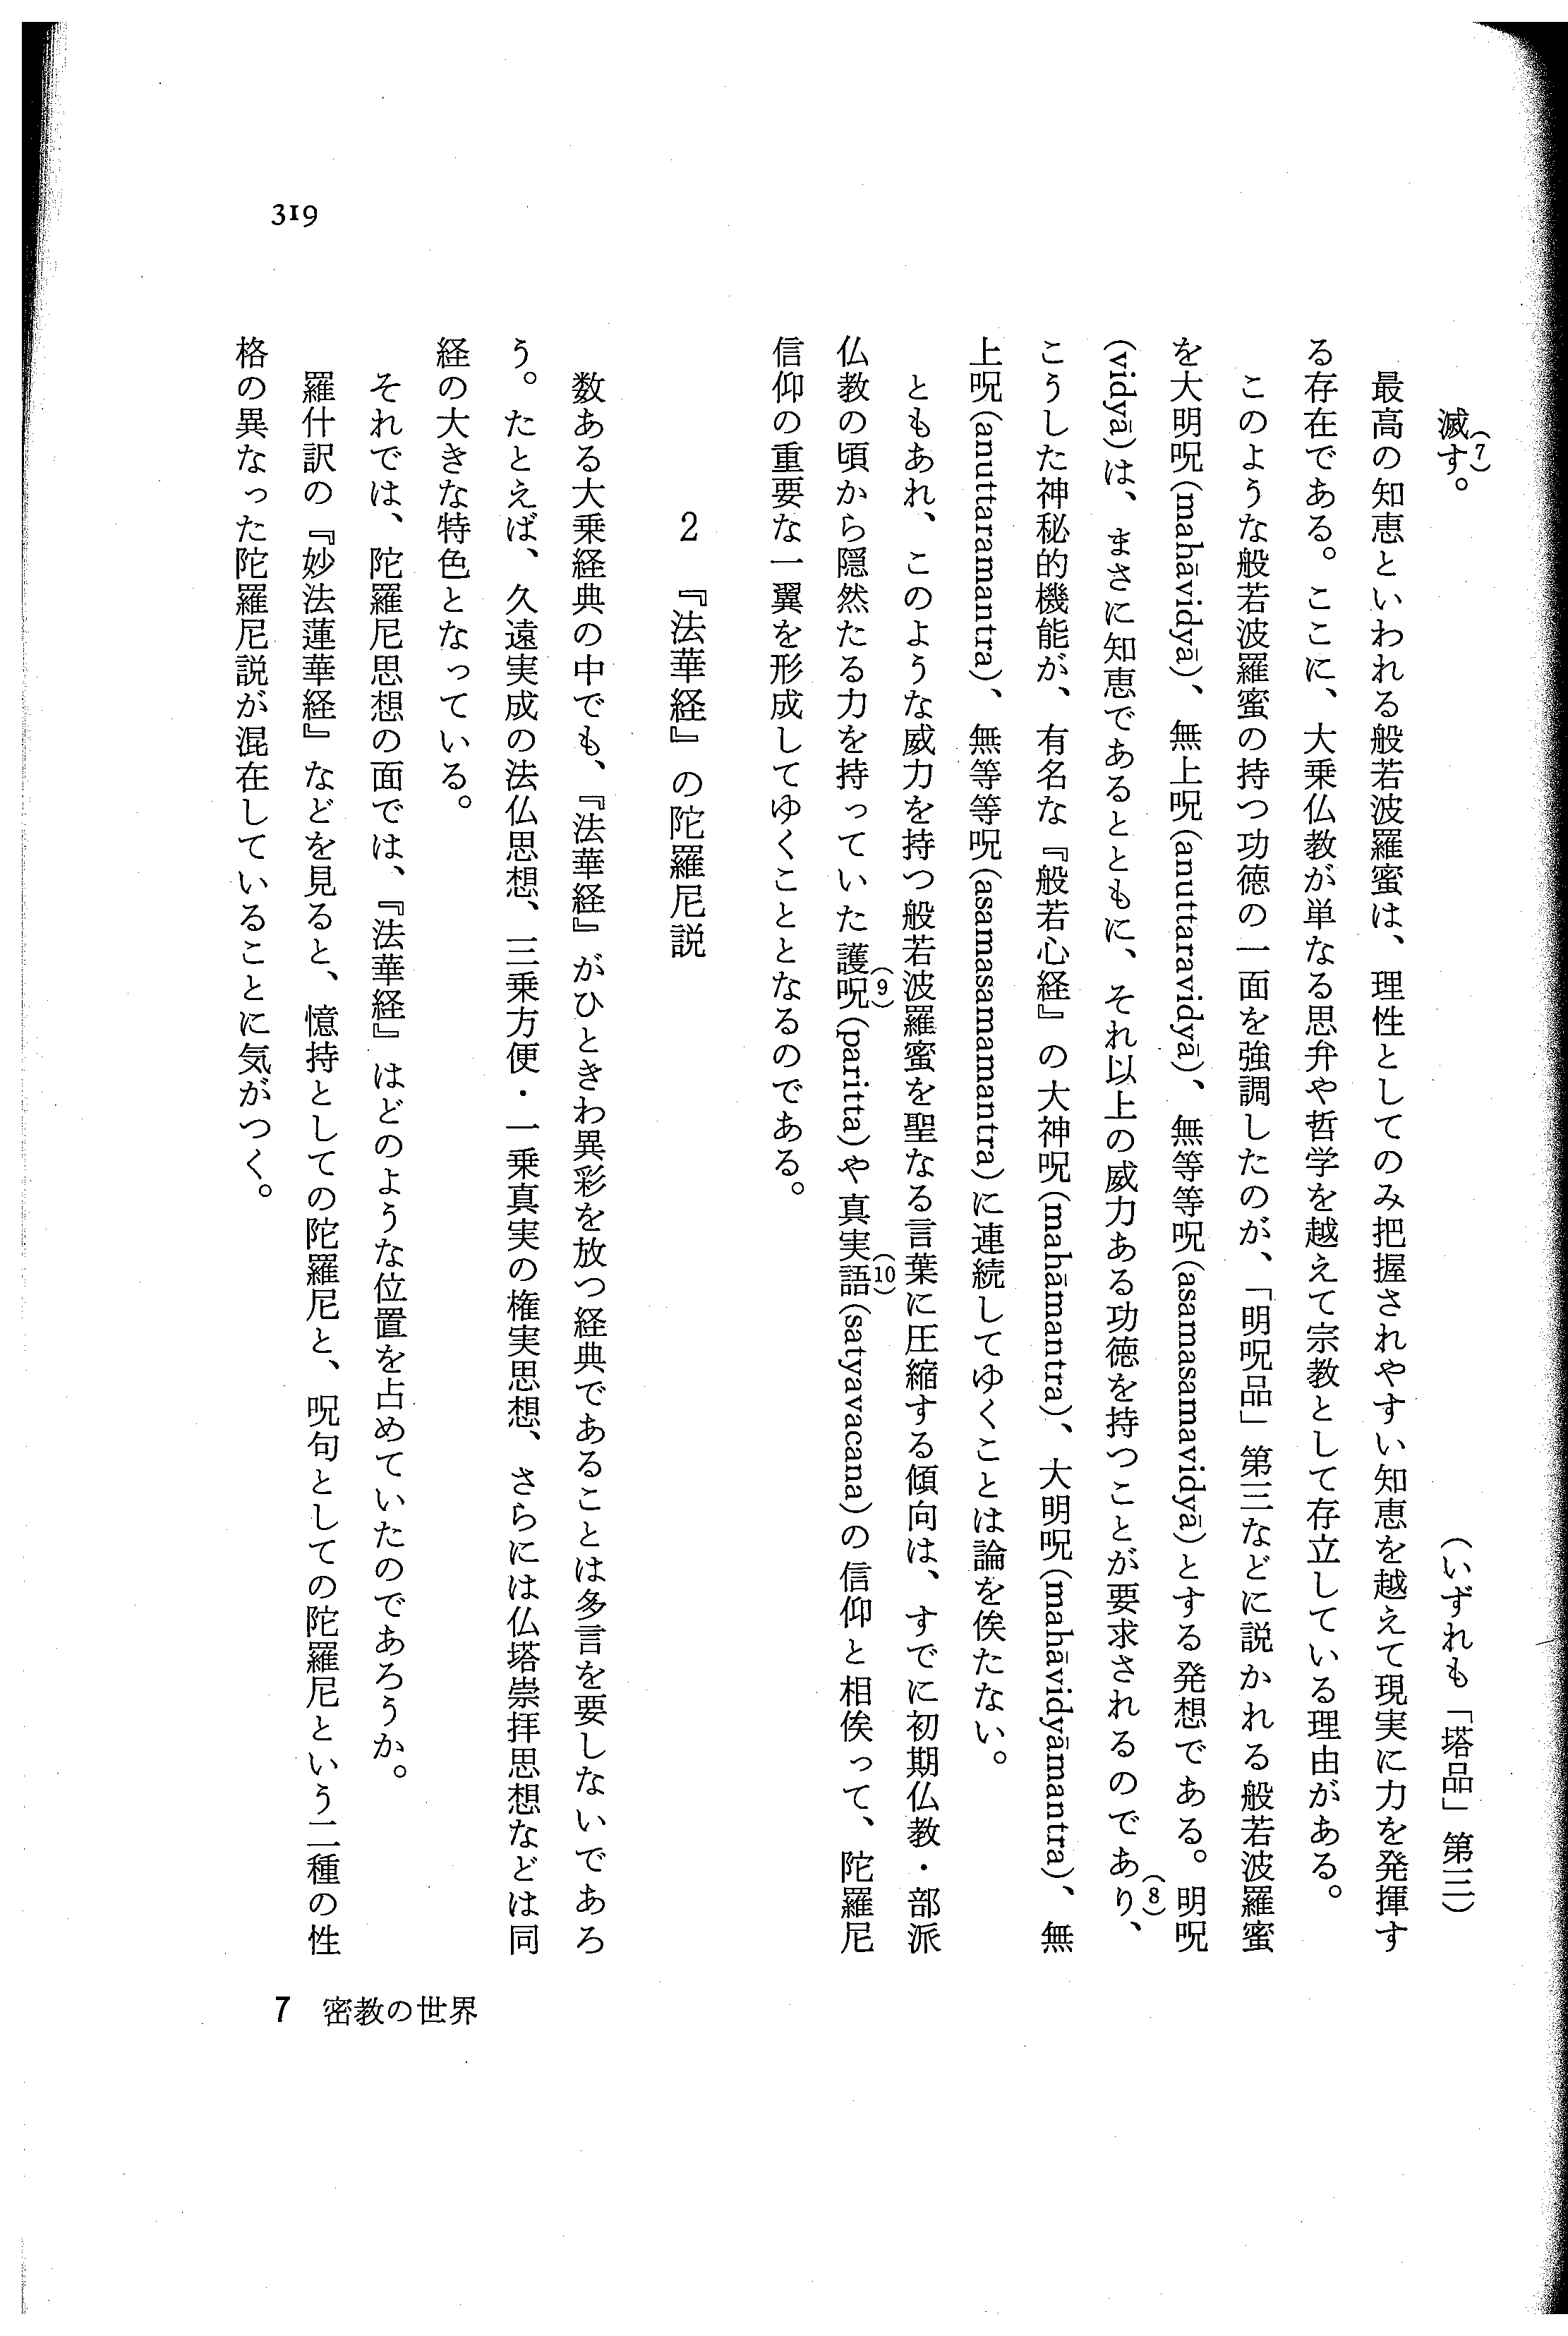 滅す。(7)
(いずれも「塔品」第三)
最高の知恵といわれる般若波羅蜜は、理性としてのみ把握されやすい知恵を越えて現実に力を発揮す
る存在である。ここに、大乗仏教が単なる思弁や哲学を越えて宗教として存立している理由がある。
このような般若波羅蜜の持つ功徳の一面を強調したのが、「明呪品」第三などに説かれる般若波羅蜜
を大明呪(mahāvidyā)、無上呪(anuttaravidyā)、無等等呪(asamasamavidyā)とする発想である。明呪
(vidyā)は、まさに知恵であるとともに、それ以上の威力ある功徳を持つことが要求されるのであり、(8)
こうした神秘的機能が、有名な『般若心経』の大神呪(mahāmantra)、大明呪(mahāvidyāmantra)、無
上呪(anuttaramantra)、無等等呪(asamasamamantra)に連続してゆくことは論を俟たない。
ともあれ、このような威力を持つ般若波羅蜜を聖なる言葉に圧縮する傾向は、すでに初期仏教・部派
仏教の頃から隠然たる力を持っていた護呪(9)(paritta)や真実語(10)(satyavacana)の信仰と相俟って、陀羅尼
信仰の重要な一翼を形成してゆくこととなるのである。
2 『法華経』の陀羅尼説
数ある大乗経典の中でも、『法華経』がひときわ異彩を放つ経典であることは多言を要しないであろ
う。たとえば、久遠実成の法仏思想、三乗方便・一乗真実の権実思想、さらには仏塔崇拝思想などは同
経の大きな特色となっている。
それでは、陀羅尼思想の面では、『法華経』はどのような位置を占めていたのであろうか。
羅什訳の『妙法蓮華経』などを見ると、憶持としての陀羅尼と、呪句としての陀羅尼という二種の性
格の異なった陀羅尼説が混在していることに気がつく。
319
7 密教の世界